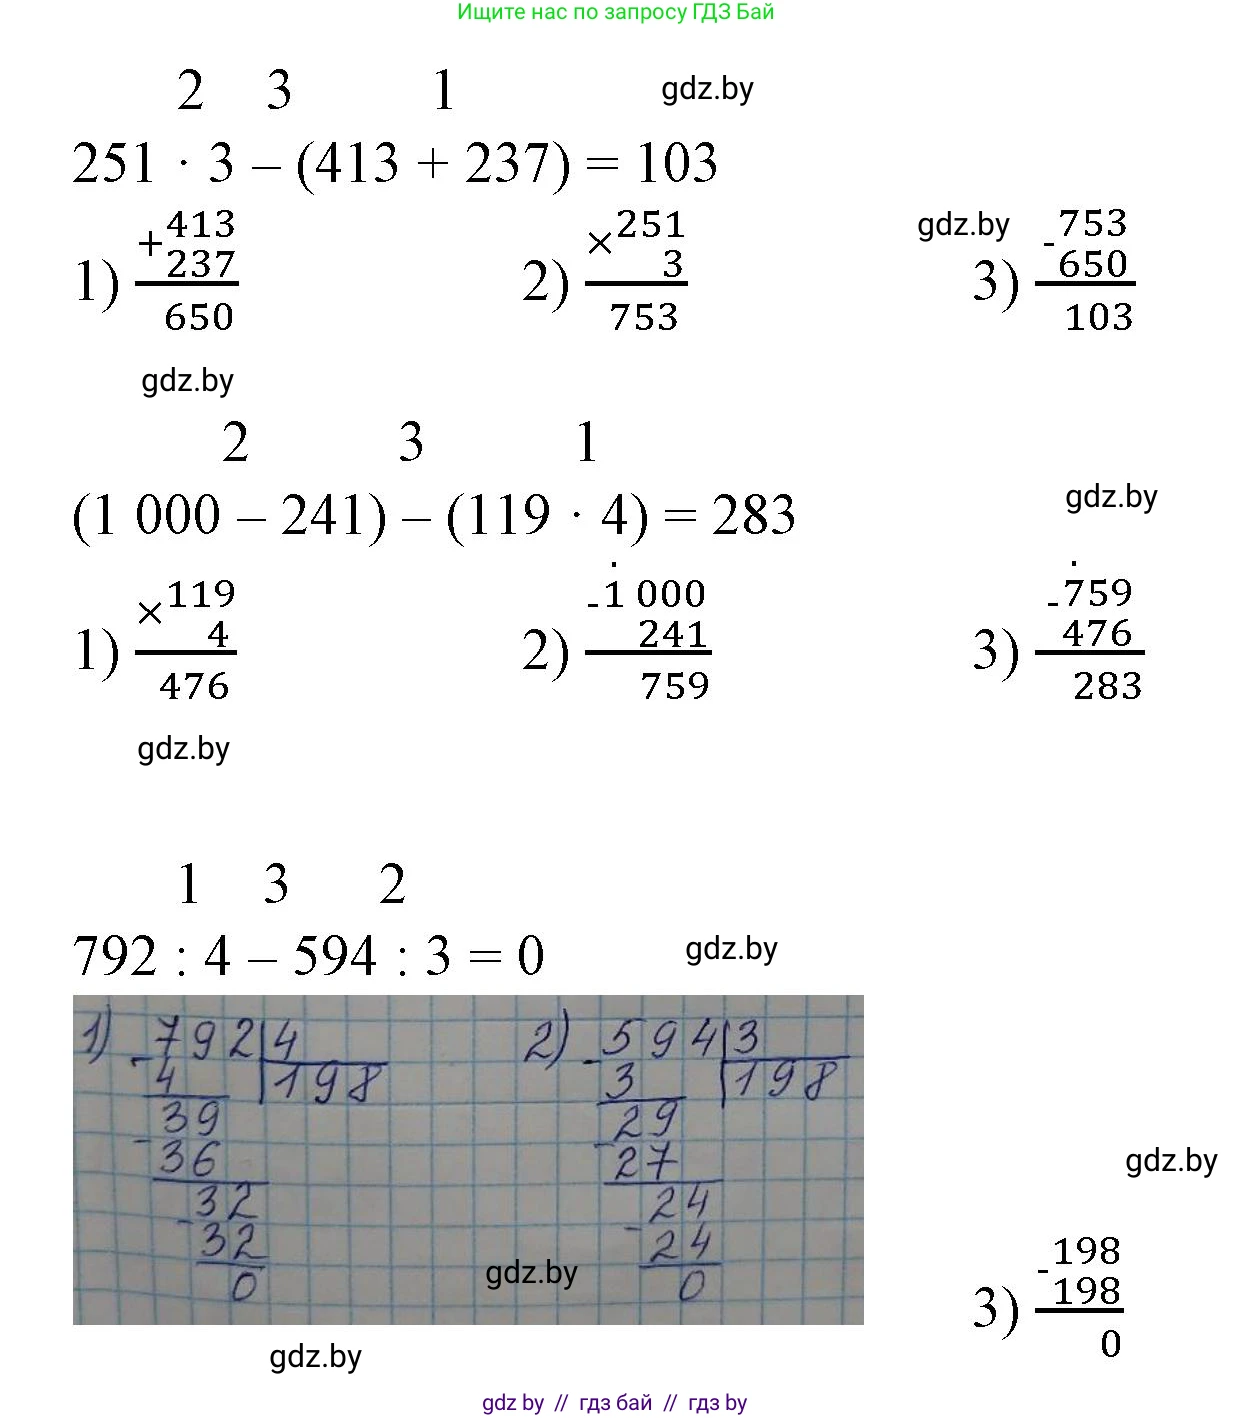 Ищите нас по запросу ГДЗ Бай
2 3 1 gdz.by
251 · 3 – (413 + 237) = 103
1) +413 237 650 2) ×251 3 753 gdz.by 3) -753 650 103
gdz.by
2 3 1
(1 000 – 241) – (119 · 4) = 283 gdz.by
1) ×119 4 476 2) -1 000 241 759 3) -759 476 283
gdz.by
1 3 2
792 : 4 – 594 : 3 = 0 gdz.by
1) 792 4 2) 594 3
- 4 198 - 3 198
39 29
- 36 - 27
32 24
- 32 - 24
0 0
gdz.by
gdz.by
3) -198 198 0
gdz.by
gdz by // гдз бай // гдз by